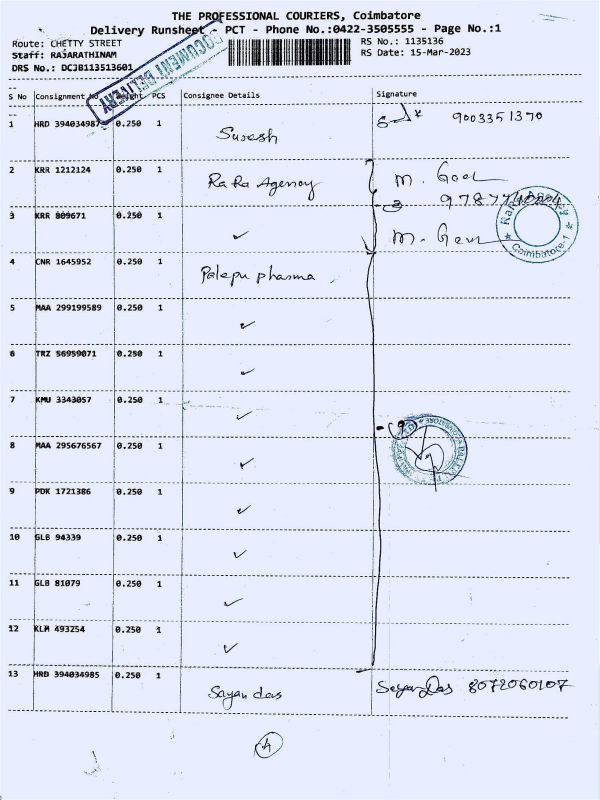 THE PROFESSIONAL COURIERS, Coimbatore
Delivery Runsheet - PCT - Phone No.:0422-3505555 - Page No.:1
Route: CHETTY STREET
RS No.: 1135136
Staff: RAJARATHINAM
RS Date: 15-Mar-2023
DRS No.: DCJB113513601
DOCUMENT DELIVERY
S No Consignment PCS Consignee Details Signature
1 HRD 39403498 0.250 1 Suresh 9003351370
2 KRR 1212124 0.250 1 RaRa Agency M.
3 KRR 809671 0.250 1 ✓ M.
Coimbatore-1
4 CNR 1645952 0.250 1 Palepu pharma
5 MAA 299199589 0.250 1 ✓
6 TRZ 56959071 0.250 1 ✓
7 KMU 3343057 0.250 1 ✓
8 MAA 295676567 0.250 1 ✓
9 PDK 1721386 0.250 1 ✓
10 GLB 94339 0.250 1 ✓
11 GLB 81079 0.250 1 ✓
12 KLM 493254 0.250 1 ✓
13 HRD 394034985 0.250 1 Sayan das Sayan Das 8072060107
4